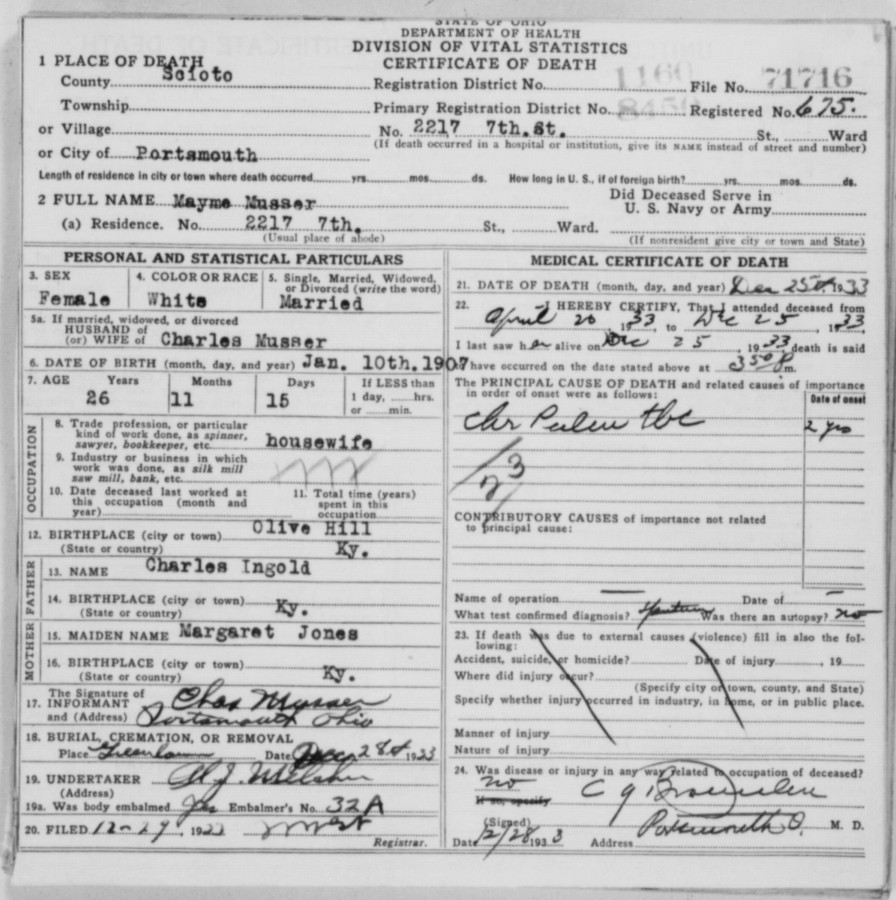 STATE OF OHIO
DEPARTMENT OF HEALTH
DIVISION OF VITAL STATISTICS
CERTIFICATE OF DEATH
1 PLACE OF DEATH
County Scioto
Registration District No. 1160 File No. 71716
Township
Primary Registration District No. 8450 Registered No. 675.
or Village
No. 2217 7th. St. St., Ward
(If death occurred in a hospital or institution, give its NAME instead of street and number)
or City of Portsmouth
Length of residence in city or town where death occurred yrs. mos. ds. How long in U. S., if of foreign birth? yrs. mos. ds.
2 FULL NAME Mayme Musser
Did Deceased Serve in
U. S. Navy or Army
(a) Residence. No. 2217 7th. St., Ward.
(Usual place of abode) (If nonresident give city or town and State)
PERSONAL AND STATISTICAL PARTICULARS
3. SEX Female
4. COLOR OR RACE White
5. Single, Married, Widowed,
or Divorced (write the word)
Married
5a. If married, widowed, or divorced
HUSBAND of
(or) WIFE of Charles Musser
6. DATE OF BIRTH (month, day, and year) Jan. 10th. 1907
7. AGE Years Months Days If LESS than
26 11 15 1 day, hrs.
or min.
OCCUPATION
8. Trade profession, or particular
kind of work done, as spinner,
sawyer, bookkeeper, etc. housewife
9. Industry or business in which
work was done, as silk mill
saw mill, bank, etc.
10. Date deceased last worked at
this occupation (month and
year)
11. Total time (years)
spent in this
occupation
12. BIRTHPLACE (city or town) Olive Hill
(State or country) Ky.
FATHER
13. NAME Charles Ingold
14. BIRTHPLACE (city or town)
(State or country) Ky.
MOTHER
15. MAIDEN NAME Margaret Jones
16. BIRTHPLACE (city or town)
(State or country) Ky.
The Signature of
17. INFORMANT Chas Musser
and (Address) Portsmouth Ohio
18. BURIAL, CREMATION, OR REMOVAL
Place Greenlawn Date Dec 28th 1933
19. UNDERTAKER
(Address)
19a. Was body embalmed Yes Embalmer's No. 32A
20. FILED 12-29, 1933
Registrar.
MEDICAL CERTIFICATE OF DEATH
21. DATE OF DEATH (month, day, and year) Dec 25th 1933
22. I HEREBY CERTIFY, That I attended deceased from
April 20, 1933, to Dec 25, 1933,
I last saw her alive on Dec 25, 1933 death is said
to have occurred on the date stated above at 350 P m.
The PRINCIPAL CAUSE OF DEATH and related causes of importance
in order of onset were as follows: Date of onset
Chr Pulm tbc 2 yrs
23
CONTRIBUTORY CAUSES of importance not related
to principal cause:
Name of operation Date of
What test confirmed diagnosis? Sputum Was there an autopsy? no
23. If death was due to external causes (violence) fill in also the fol-
lowing:
Accident, suicide, or homicide? Date of injury, 19
Where did injury occur?
(Specify city or town, county, and State)
Specify whether injury occurred in industry, in home, or in public place.
Manner of injury
Nature of injury
24. Was disease or injury in any way related to occupation of deceased?
no
If so, specify
(Signed) M. D.
Date 12/28 1933 Address Portsmouth O.